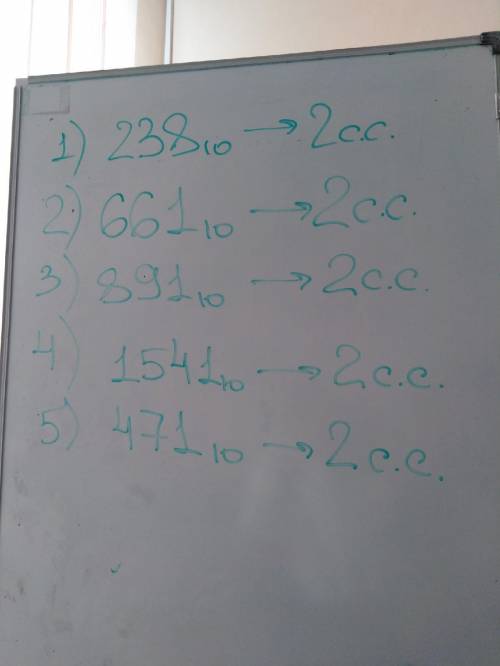 1) 238₁₀ → 2 с.с.
2) 661₁₀ → 2 с.с.
3) 891₁₀ → 2 с.с.
4) 1541₁₀ → 2 с.с.
5) 471₁₀ → 2 с.с.